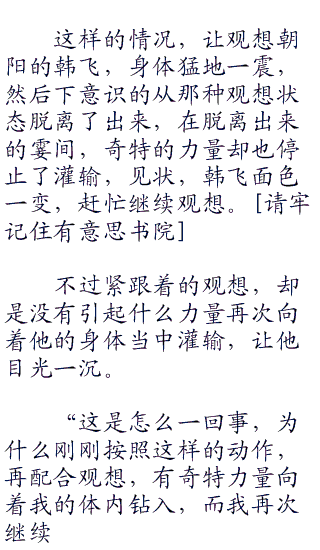 这样的情况，让观想朝
阳的韩飞，身体猛地一震，
然后下意识的从那种观想状
态脱离了出来，在脱离出来
的霎间，奇特的力量却也停
止了灌输，见状，韩飞面色
一变，赶忙继续观想。[请牢
记住有意思书院]
不过紧跟着的观想，却
是没有引起什么力量再次向
着他的身体当中灌输，让他
目光一沉。
“这是怎么一回事，为
什么刚刚按照这样的动作，
再配合观想，有奇特力量向
着我的体内钻入，而我再次
继续